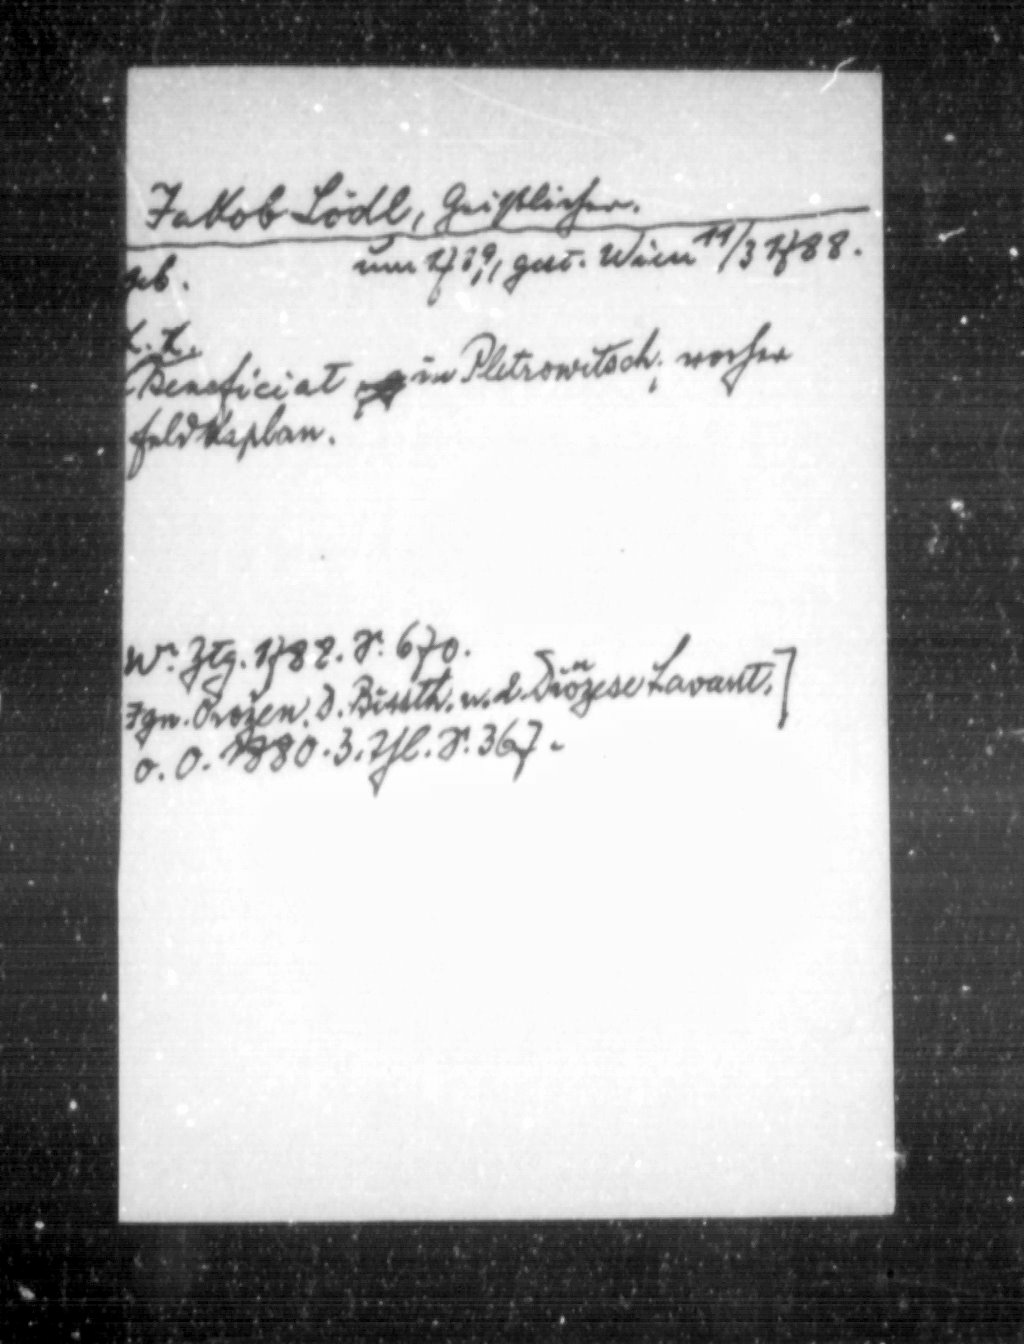 Jakob Lödl, Geistlicher.
geb. um 1739, gest. Wien 11/3 1788.
L. L.
Beneficiat in Pletrowitsch, vorher
Feldkaplan.
Wr. Ztg. 1788. S. 670.
Ign. Orožen. D. Bisth. u. d. Diözese Lavant.]
o. O. 1880. 3. Thl. S. 367.